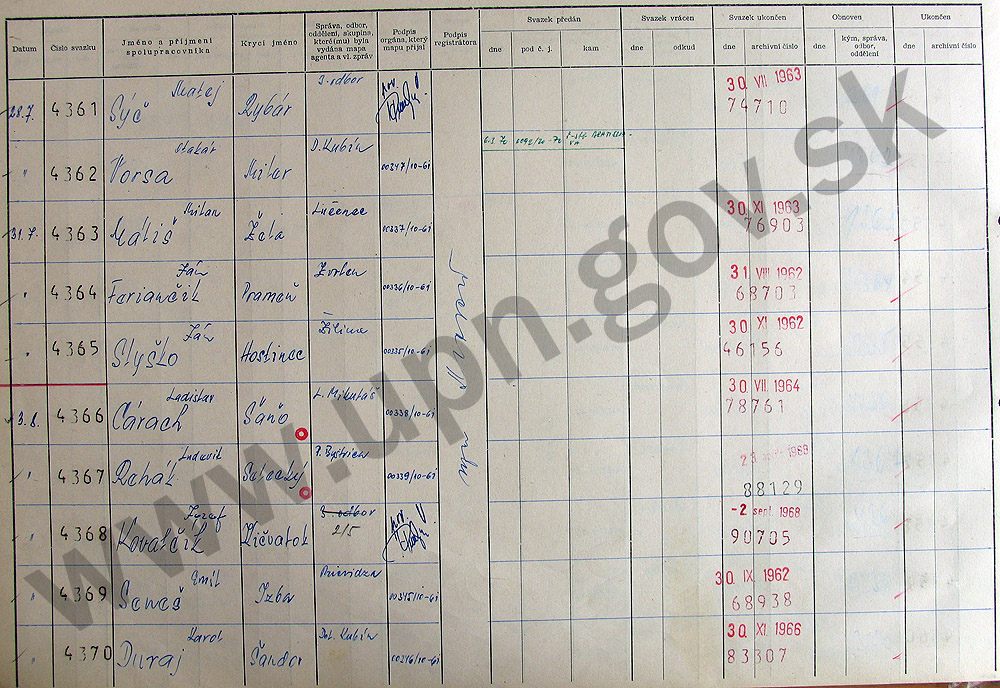 Datum
Číslo svazku
Jméno a příjmení
spolupracovníka
Krycí jméno
Správa, odbor,
oddělení, skupina,
které(mu) byla
vydána mapa
agenta a vl. zpráv
Podpis
orgána, který
mapu přijal
Podpis
registrátora
Svazek předán
dne
pod č. j.
kam
Svazek vrácen
dne
odkud
Svazek ukončen
dne
archivní číslo
Obnoven
dne
kým, správa,
odbor,
oddělení
Ukončen
dne
archivní číslo
28.7. 4361 Matej
Syč Rybár 3. odbor 30 VII. 1963
74710
" 4362
Vorsa Milor D. Kubín 00347/10-61
31.7. 4363 Milan
Mališ Žela Lučenec 00337/10-61 30 XI 1963
76903
" 4364 Ján
Feriančik Prameň Zvolen 00336/10-61 31 VIII 1962
68703
" 4365 Ján
Slyško Hostinec Žilina 00335/10-61 30 XI 1962
46156
3.8. 4366 Ladislav
Cárach Šaňo L. Mikuláš 00338/10-61 30 VII 1964
78761
" 4367 Ludovit
Rehák P. Bystrica 00339/10-61 1969
88129
" 4368 Jozef
Kovalčík Kičvatok 3. odbor
2/5 -2 sept. 1968
90705
" 4369 Emil
Seneš Izba Prievidza 00345/10-61 30 IX. 1962
68938
" 4370 Karol
Duraj Šandor Dol. Kubín 00346/10-61 30 XI. 1966
83307
www.upn.gov.sk